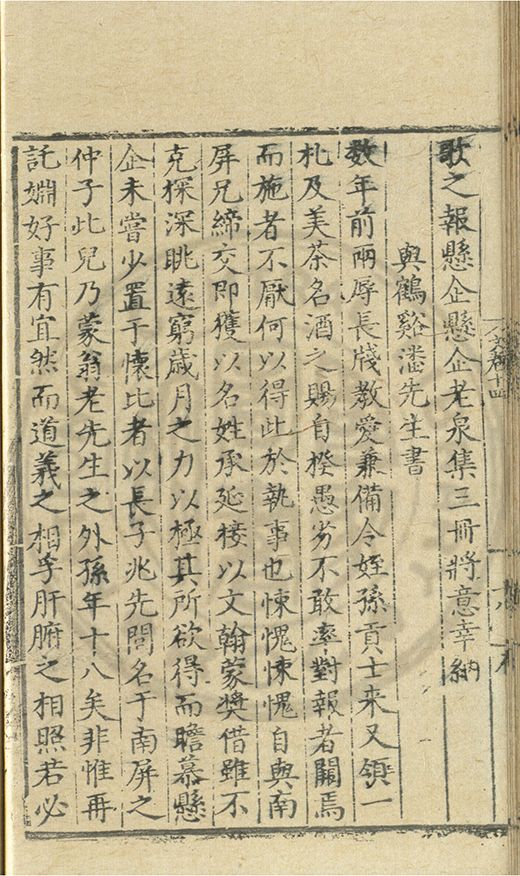 歌之報懸企懸企老泉集三冊將意幸納
與鶴谿潘先生書
数年前兩辱長牋教愛兼備令姪孫貢士来又領一
札及美茶名酒之賜自揆愚劣不敢率對報者闕焉
而施者不厭何以得此於執事也悚愧悚愧自與南
屏兄締交即獲以名姓承延接以文翰蒙奬借雖不
克探深眺遠窮歲月之力以極其所欲得而瞻慕懸
企未嘗少置于懷比者以長子兆先問名于南屏之
仲子此兒乃蒙翁老先生之外孫年十八矣非惟再
託婣好事有宜然而道義之相孚肝腑之相照若必